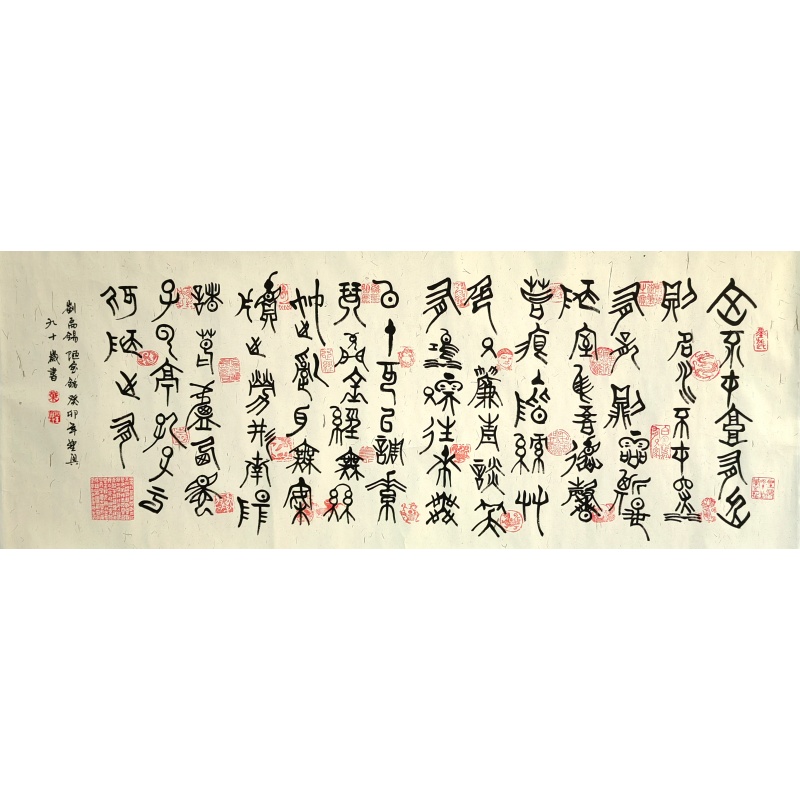 山不在高有仙
則名水不在深
有龍則靈斯是
陋室惟吾德馨
苔痕階綠艸
色入簾青談笑
有鴻儒往來無
白丁可以調素
琴閱金經無絲
竹之亂耳無案
牘之勞形南陽
諸葛廬西蜀
子雲亭孔子云
何陋之有
劉禹錫陋室銘癸卯年
九十歲書